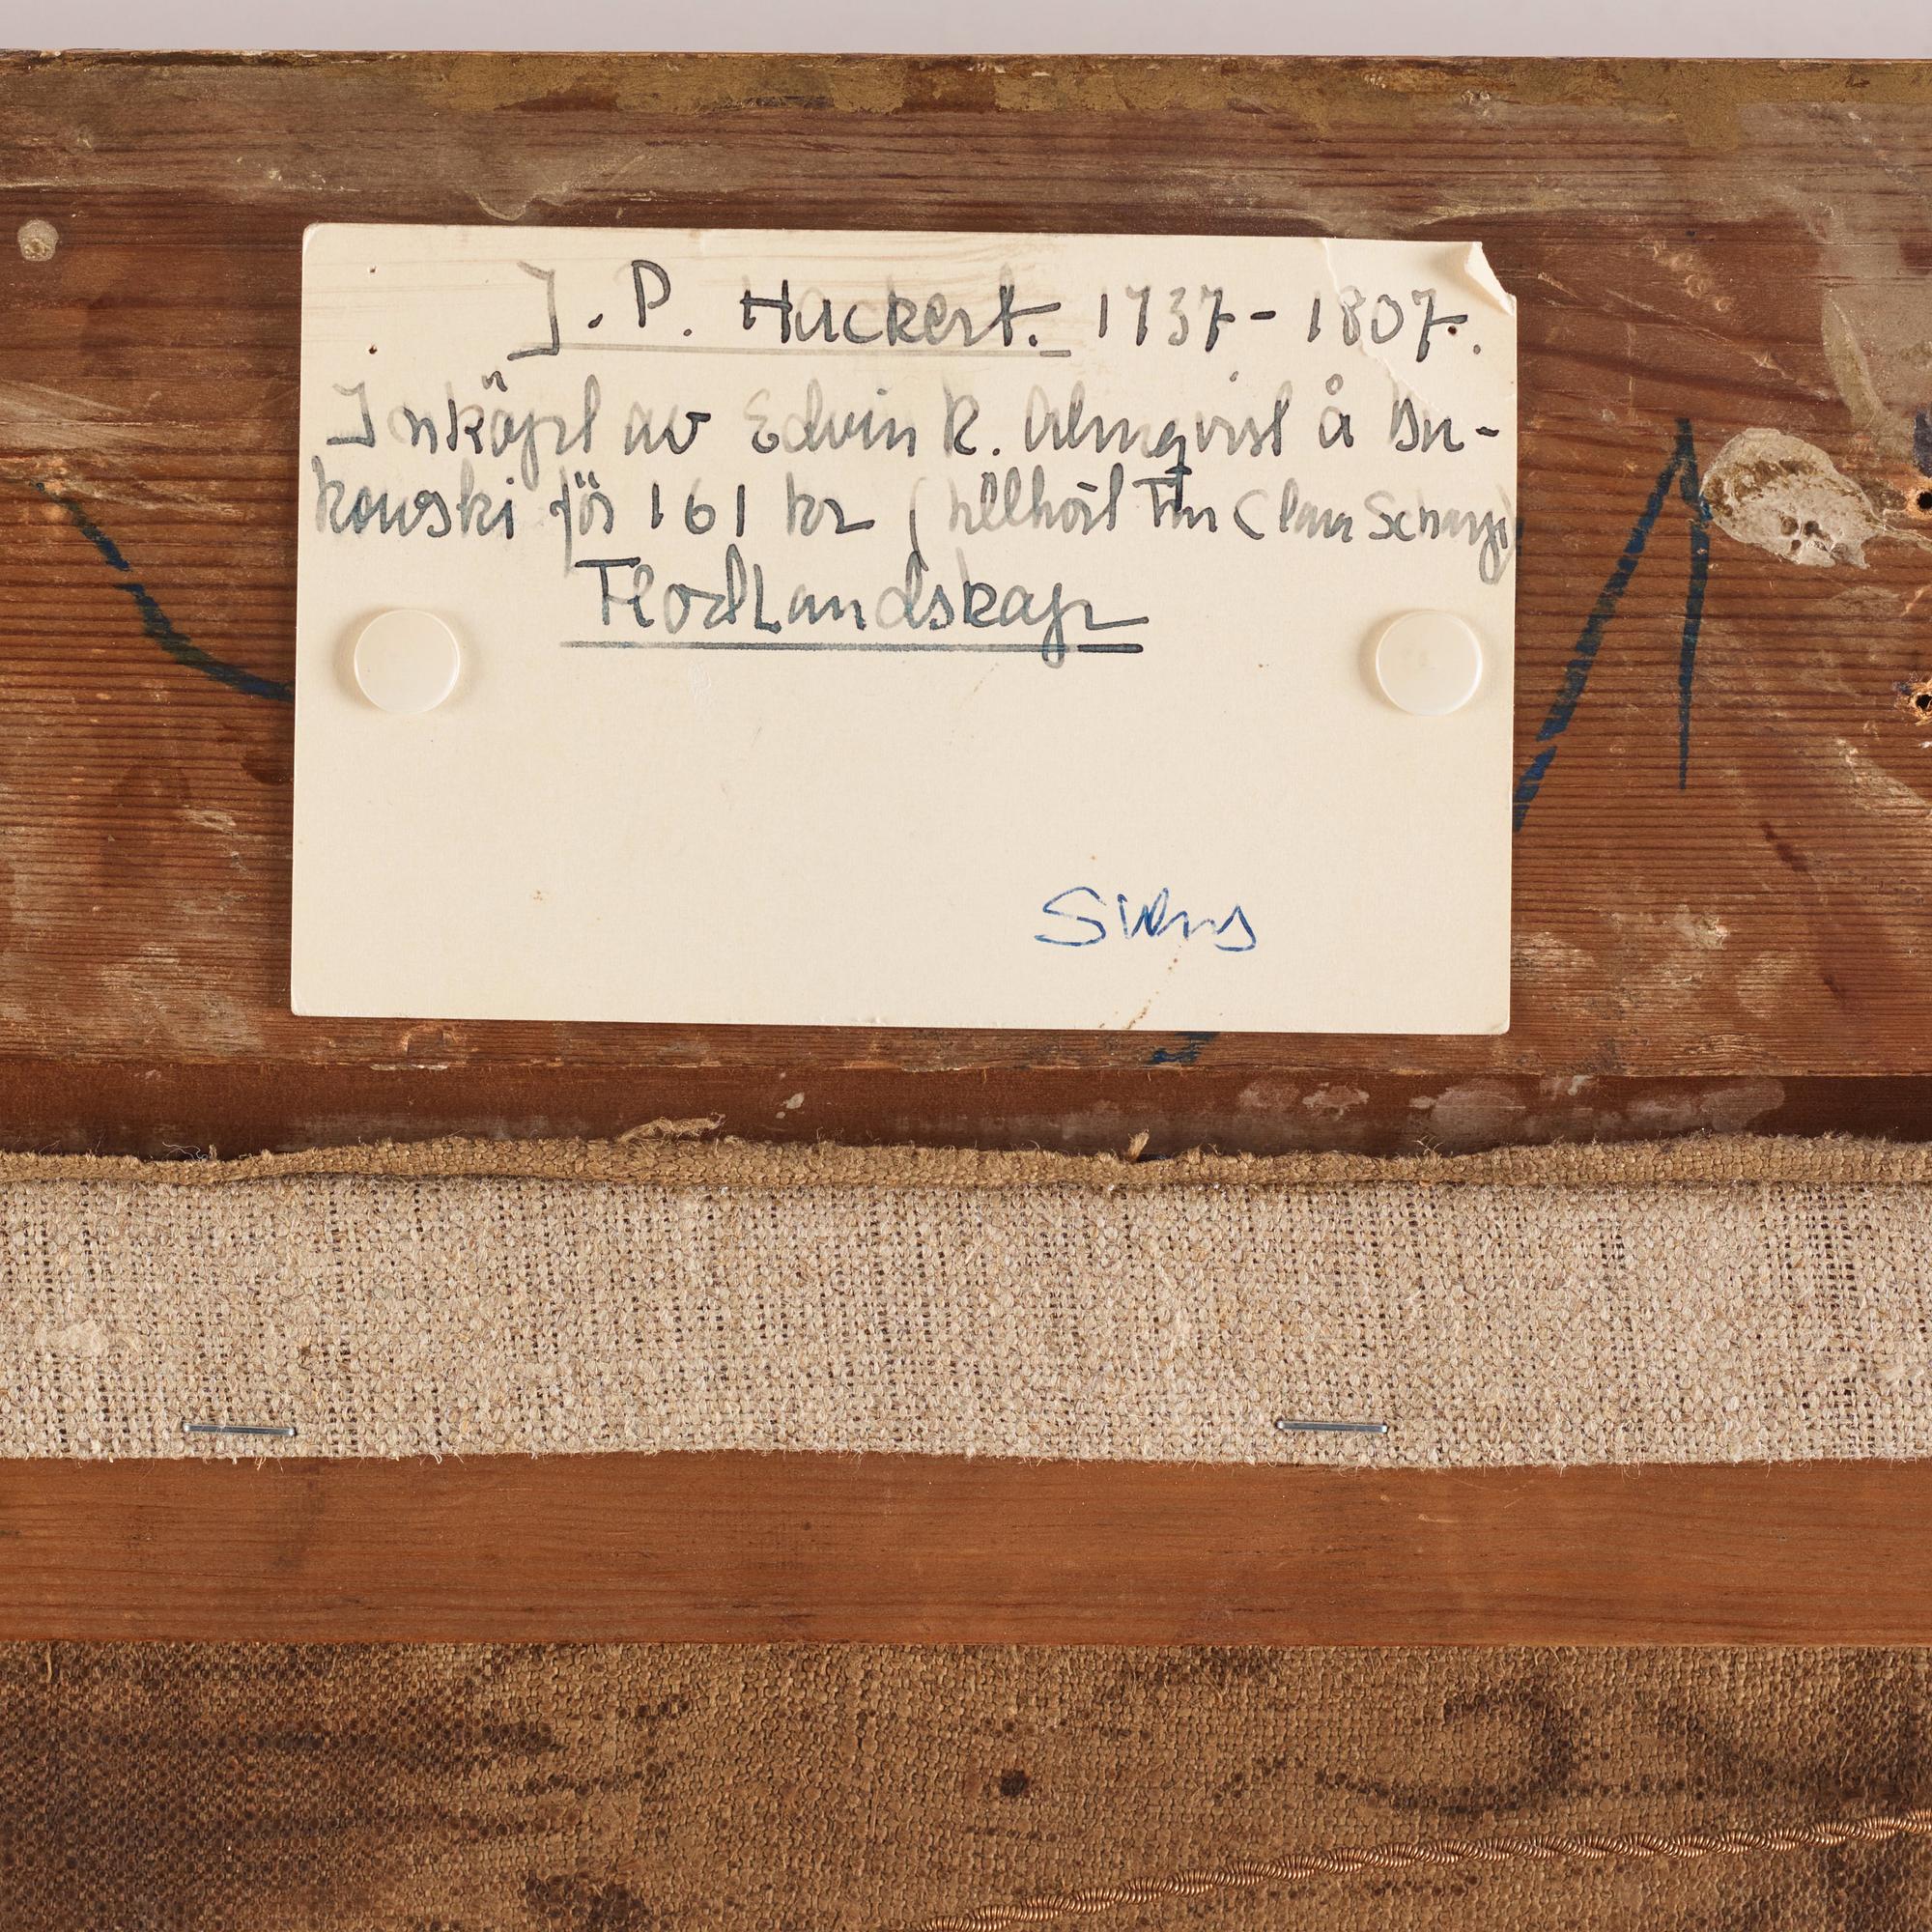 J. P. Hackert. 1737-1807.
Inköpt av Edvin R. Almqvist å Bu-
kowski för 161 kr (tillhört Frk Clara
FlodLandskap